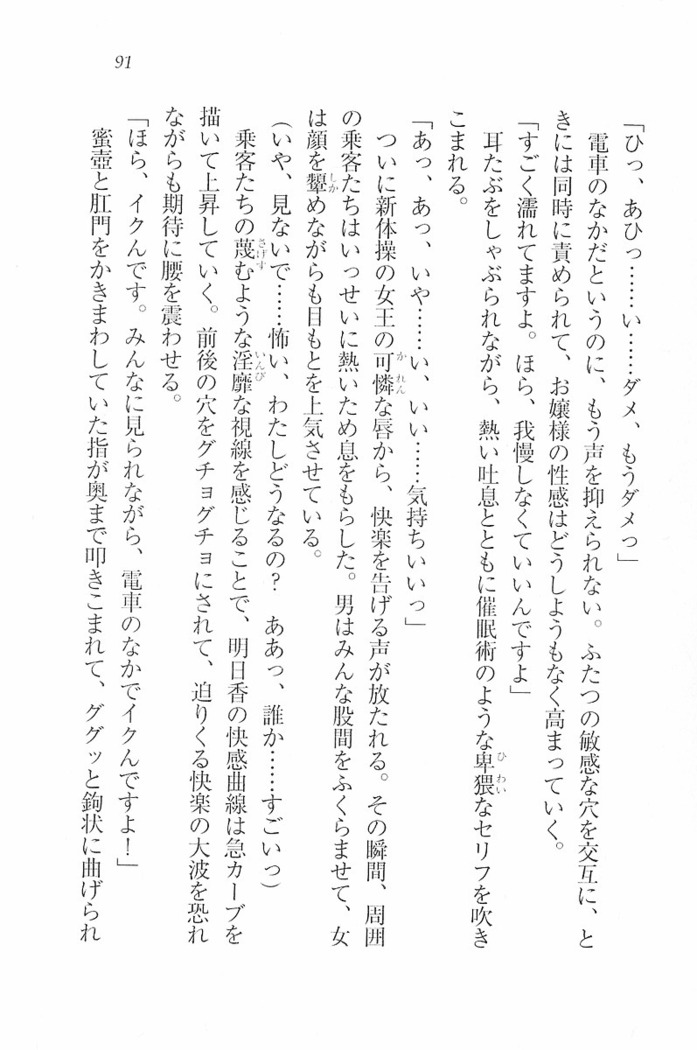 「ひっ、あひっ……い……ダメ、もうダメっ」
電車のなかだというのに、もう声を抑えられない。ふたつの敏感な穴を交互に、と
きには同時に責められて、お嬢様の性感はどうしようもなく高まっていく。
「すごく濡れてますよ。ほら、我慢しなくていいんですよ」
耳たぶをしゃぶられながら、熱い吐息とともに催眠術のような卑猥なセリフを吹き
こまれる。
「あっ、あっ、いや……い、いい……気持ちいいっ」
ついに新体操の女王の可憐な唇から、快楽を告げる声が放たれる。その瞬間、周囲
の乗客たちはいっせいに熱いため息をもらした。男はみんな股間をふくらませて、女
は顔を顰めながらも目もとを上気させている。
（いや、見ないで……怖い、わたしどうなるの？　ああっ、誰か……すごいっ）
乗客たちの蔑むような淫靡な視線を感じることで、明日香の快感曲線は急カーブを
描いて上昇していく。前後の穴をグチョグチョにされて、迫りくる快楽の大波を恐れ
ながらも期待に腰を震わせる。
「ほら、イクんです。みんなに見られながら、電車のなかでイクんですよ！」
蜜壺と肛門をかきまわしていた指が奥まで叩きこまれて、ググッと鉤状に曲げられ
91